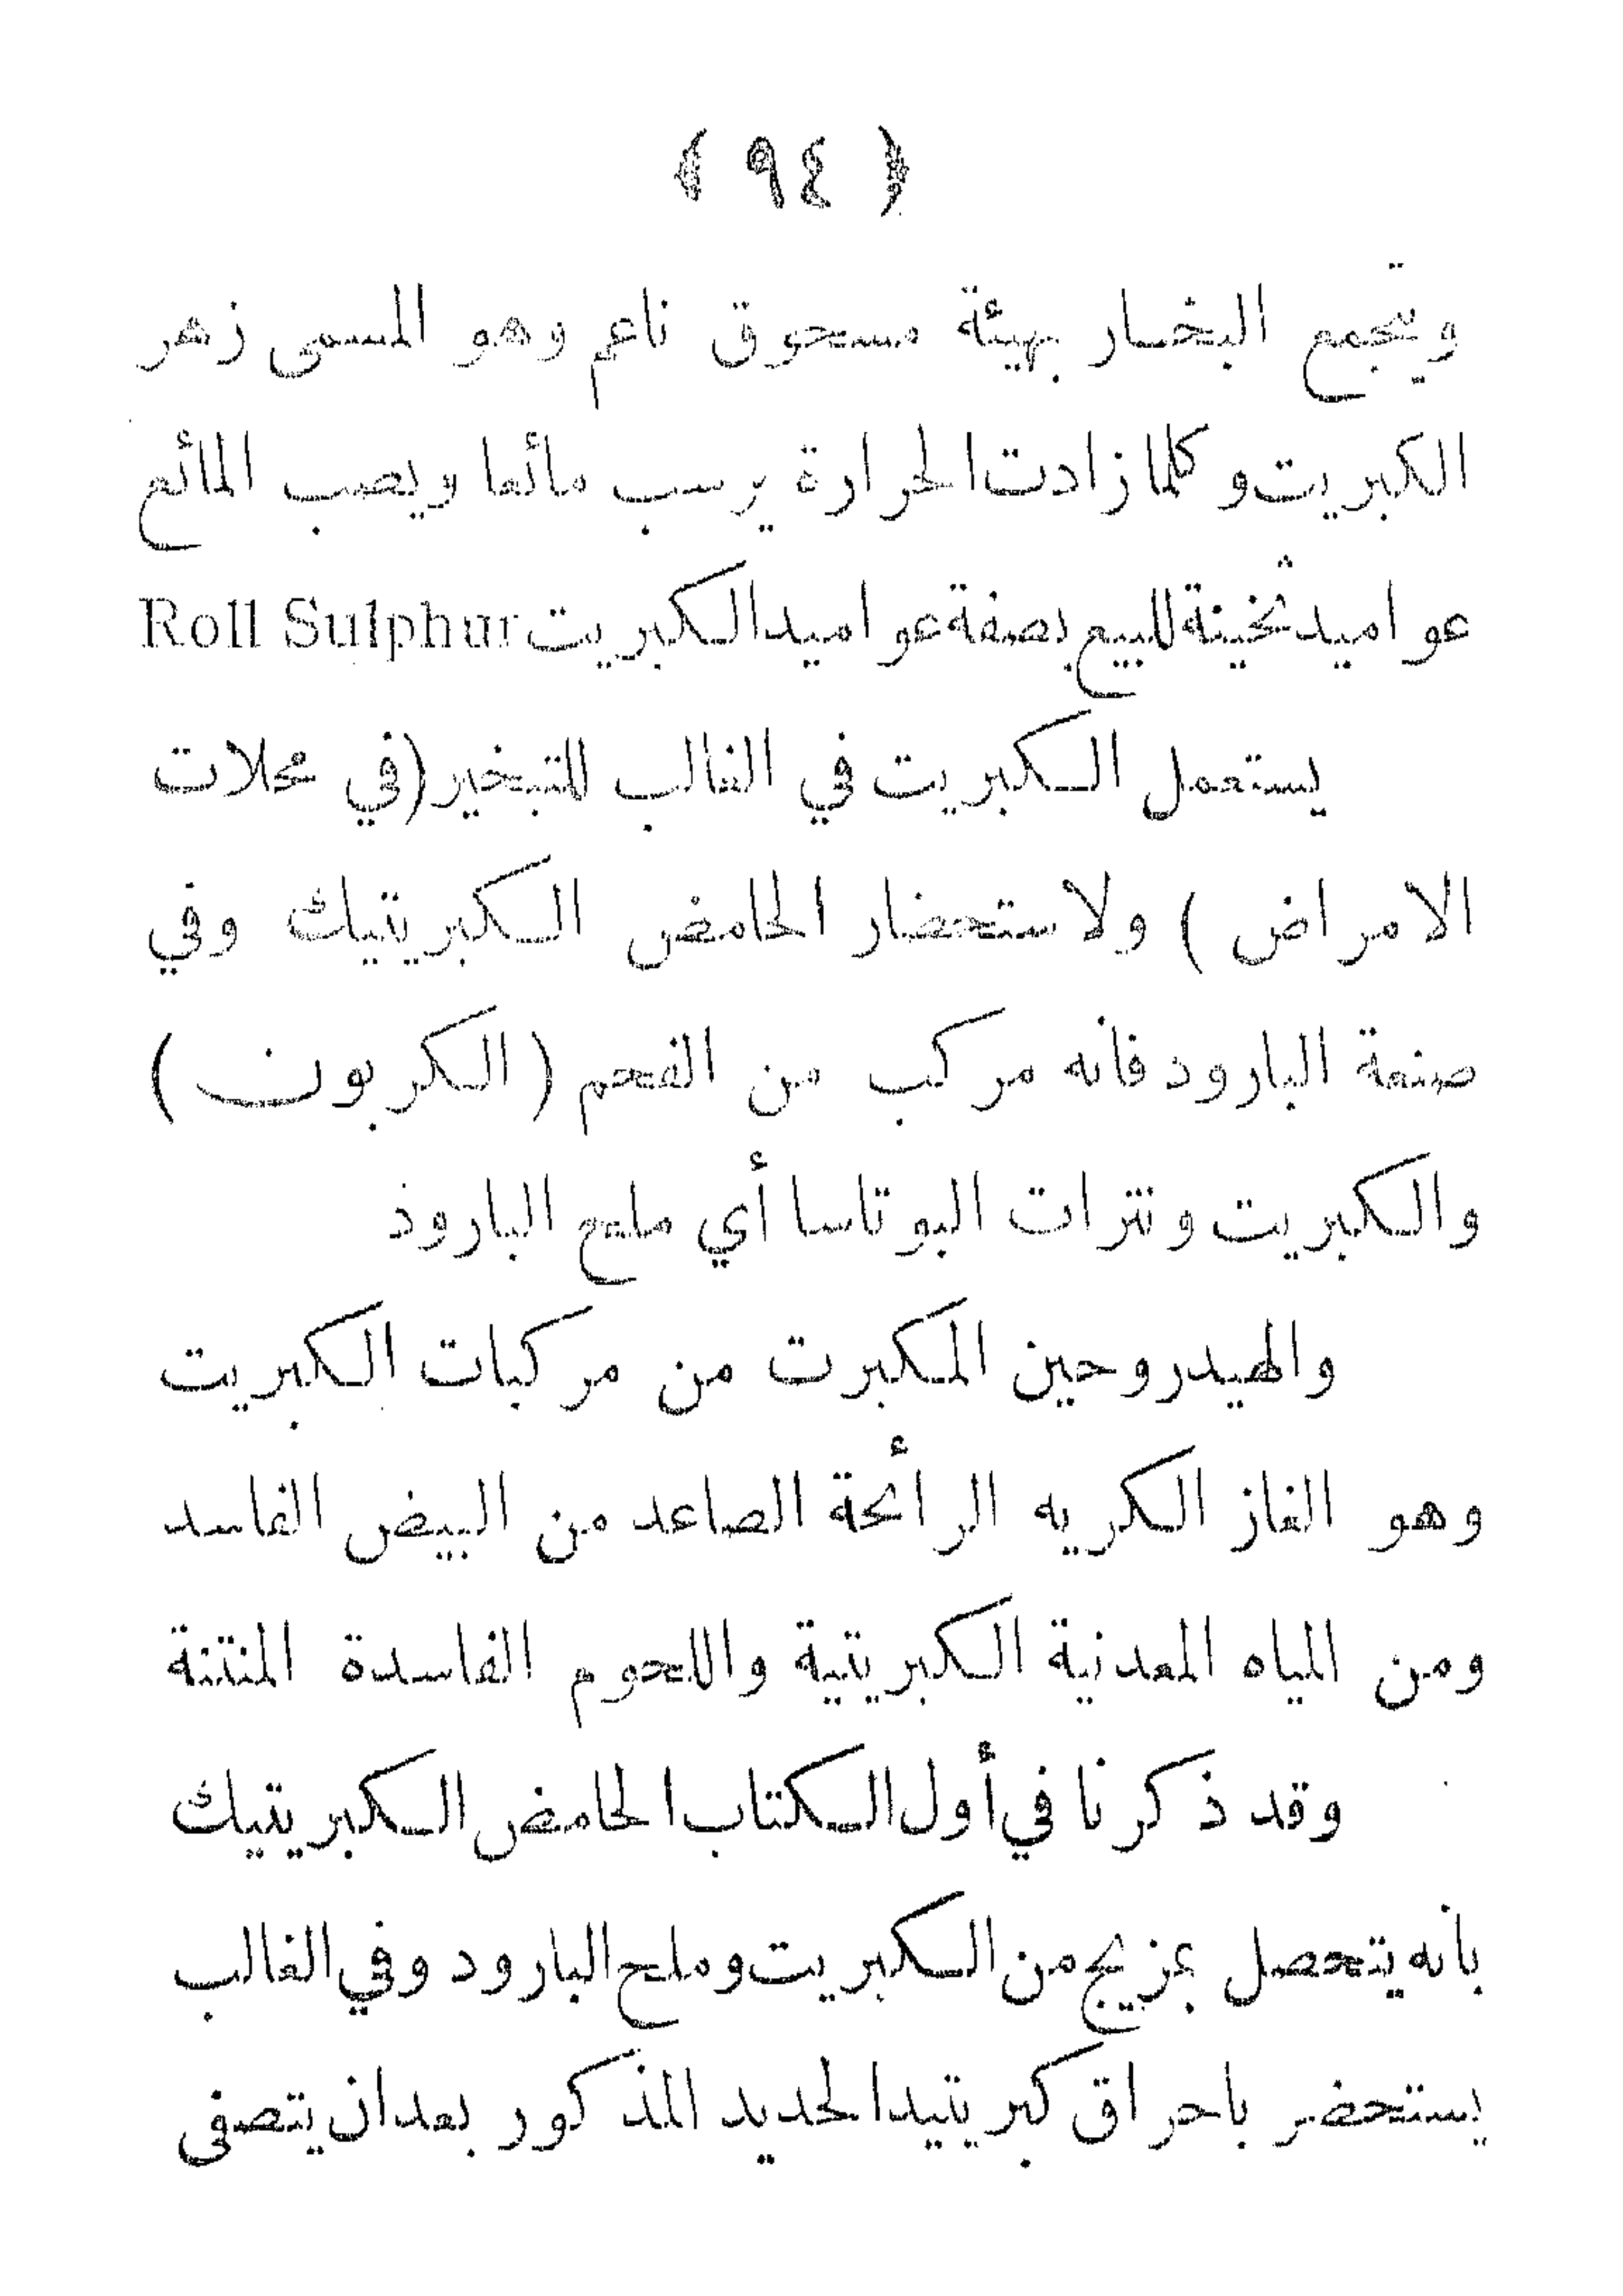 ﴿ ٩٤ ﴾
ويتجمع البخار بهيئة مسحوق ناعم وهو المسمى زهر
الكبريت وكلما زادت الحرارة يرسب مائعا ويصب المائع
عواميد ثخينة للبيع بصفة عواميد الكبريت Roll Sulphur
يستعمل الكبريت في الغالب للتبخير (في محلات
الامراض ) ولاستحضار الحامض الكبريتيك وفي
صنعة البارود فانه مركب من الفحم ( الكربون )
والكبريت ونترات البوتاسا أي ملح البارود
والهيدروجين المكبرت من مركبات الكبريت
وهو الغاز الكريه الرأئحة الصاعد من البيض الفاسد
ومن المياه المعدنية الكبريتية واللحوم الفاسدة المنتنة
وقد ذكرنا في أول الكتاب الحامض الكبريتيك
بانه يتحصل بمزيج من الكبريت وملح البارود وفي الغالب
يستحضر باحراق كبريتيد الحديد المذكور بعد ان يتصفى